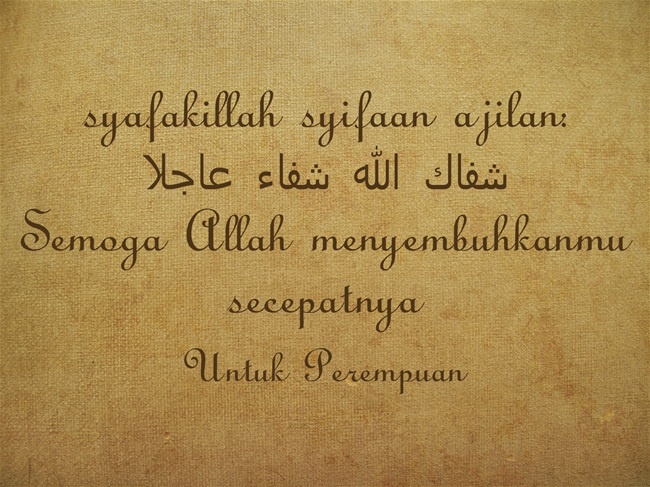 syafakillah syifaan ajilan:
شفاك الله شفاء عاجلا
Semoga Allah menyembuhkanmu
secepatnya
Untuk Perempuan